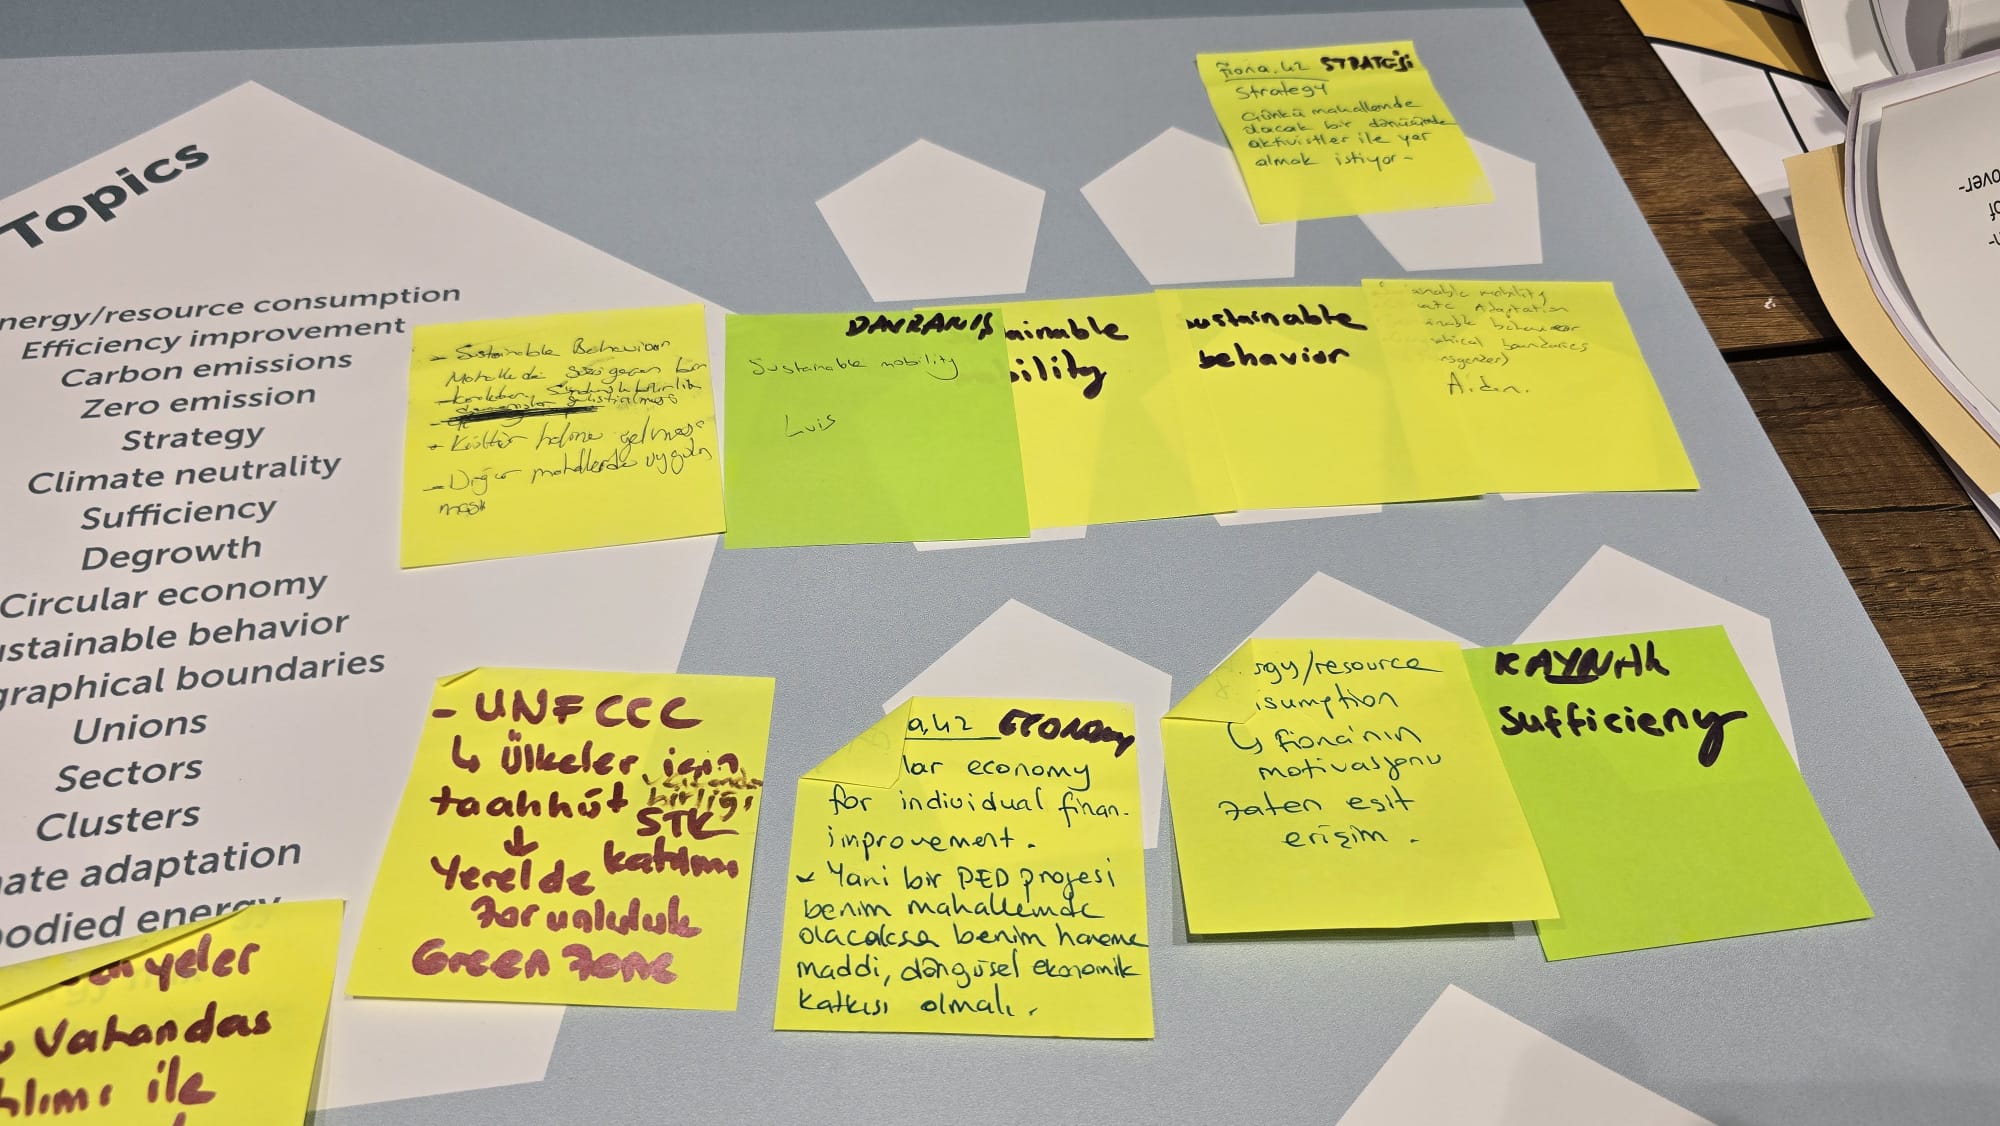 Topics
nergy/resource consumption
Efficiency improvement
Carbon emissions
Zero emission
Strategy
Climate neutrality
Sufficiency
Degrowth
Circular economy
ustainable behavior
graphical boundaries
Unions
Sectors
Clusters
ate adaptation
odied energy
Fiona, 42 STRATEJİ
Strategy
Çünkü mahallemde
olacak bir dönüşümde
aktivistler ile yer
almak istiyor-
- Sustainable Behaviour
- Kültür haline gelmesi
- Diğer mahallerde uygulan
ması
DAVRANIŞ
Sustainable mobility
Luis
ainable
bility
sustainable
behavior
ainable mobility
ate Adaptation
inable behavior
boundaries
Aiden.
- UNFCCC
↳ Ülkeler için
taahhüt
birliği
STK
katılımı
↓
Yerelde
zorunluluk
Green Zone
a, 42 ECONOMY
lar economy
for individual finan.
improvement.
Yani bir PED projesi
benim mahallemde
olacaksa benim haneme
maddi, döngüsel ekonomik
katkısı olmalı.
rgy/resource
sumption
↳ Fiona'nın
motivasyonu
zaten eşit
erişim.
KAYNAK
sufficieny
yeler
Vatandaş
ılımı ile
over-
of
n-